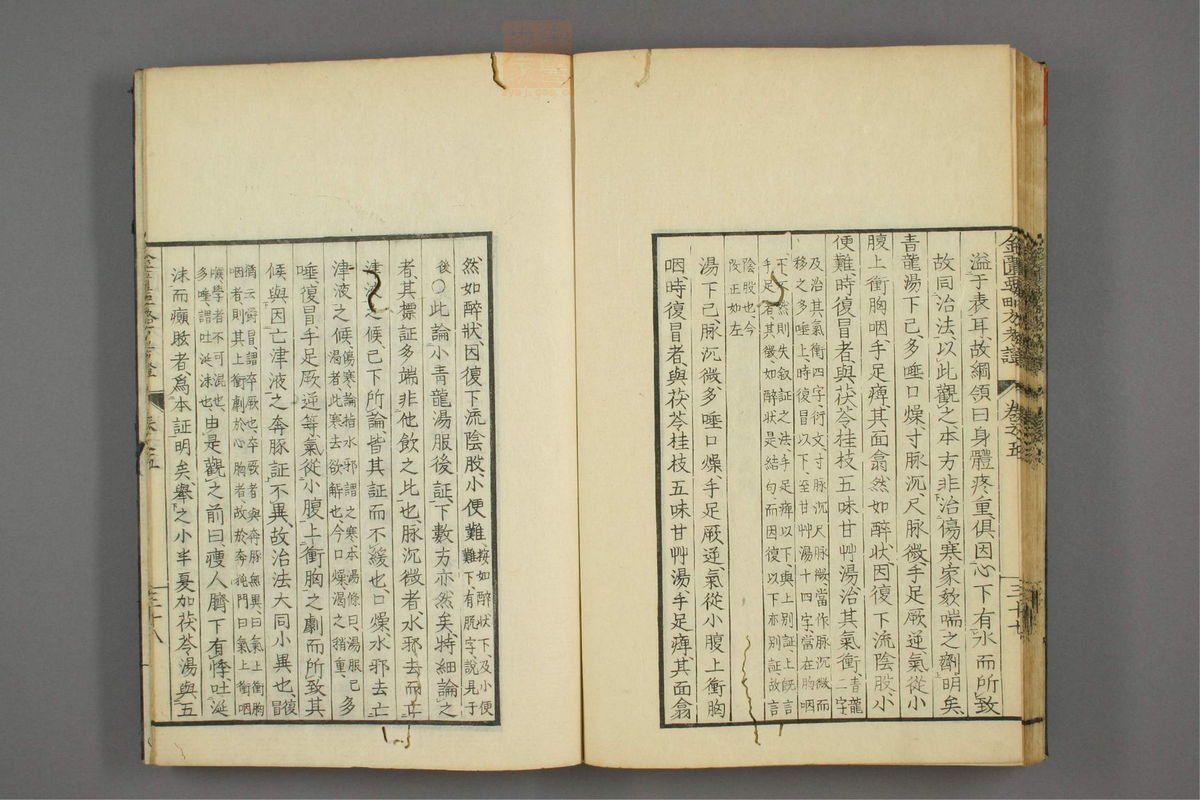 溢于表耳、故綱領曰身體疼重、俱因心下有水而所致
故同治法、以此觀之本方非治傷寒家欬喘之劑明矣、
青龍湯下已多唾口燥寸脉沉、尺脉微手足厥逆、氣從小
腹上衝胸咽、手足痺其面翕然如醉狀、因復下流陰股、小
便難、時復冒者、與茯苓桂枝五味甘艸湯治其氣衝、青龍二字
及治其氣衝四字、衍文寸脉沉尺脉微、當作脉沉微、而
移之多唾上、時復冒以下、至甘艸湯十四字當在胸咽
下、不然則失叙証之法、手足痺以下、與上別証、上既言
手足、者其徵、如醉狀是結句、而因復以下亦別証、故言
陰股也、今
改正如左
湯下已脉沉微、多唾口燥、手足厥逆、氣從小腹上衝胸
咽、時復冒者、與茯苓桂枝五味甘艸湯、手足痺、其面翕
卷之五
三十七
然如醉狀、因復下流陰股、小便難、按如醉狀下、及小便難下、有脱字、說見于
後、〇此論小青龍湯服後証、下數方亦然矣、特細論之
者、其標証多端非他飲之比也、脉沉微者、水邪去而亡
津液之候、已下所論、皆其証而不緩也、口燥水邪去亡
津液之候、傷寒論指水邪謂之寒、本湯條曰、湯服已渴者、此寒去欲解也、今口燥渴之稍重、多
唾、復冒手足厥逆等、氣從小腹上衝胸之劇而所致其
候、與因亡津液之奔豚証不異、故治法大同小異也、復冒
猶云鬱冒、謂卒厥也、卒厥者、與奔豚無異、曰氣上衝胸
咽者、則其上衝劇於心胸者、故於奔豚門曰氣上衝咽
喉、學者不可混也、
多唾、謂吐涎沫也、由是觀之前曰瘦人臍下有悸、吐涎
沫而癲眩者、爲本証明矣、擧之小半夏加茯苓湯與五
三十八